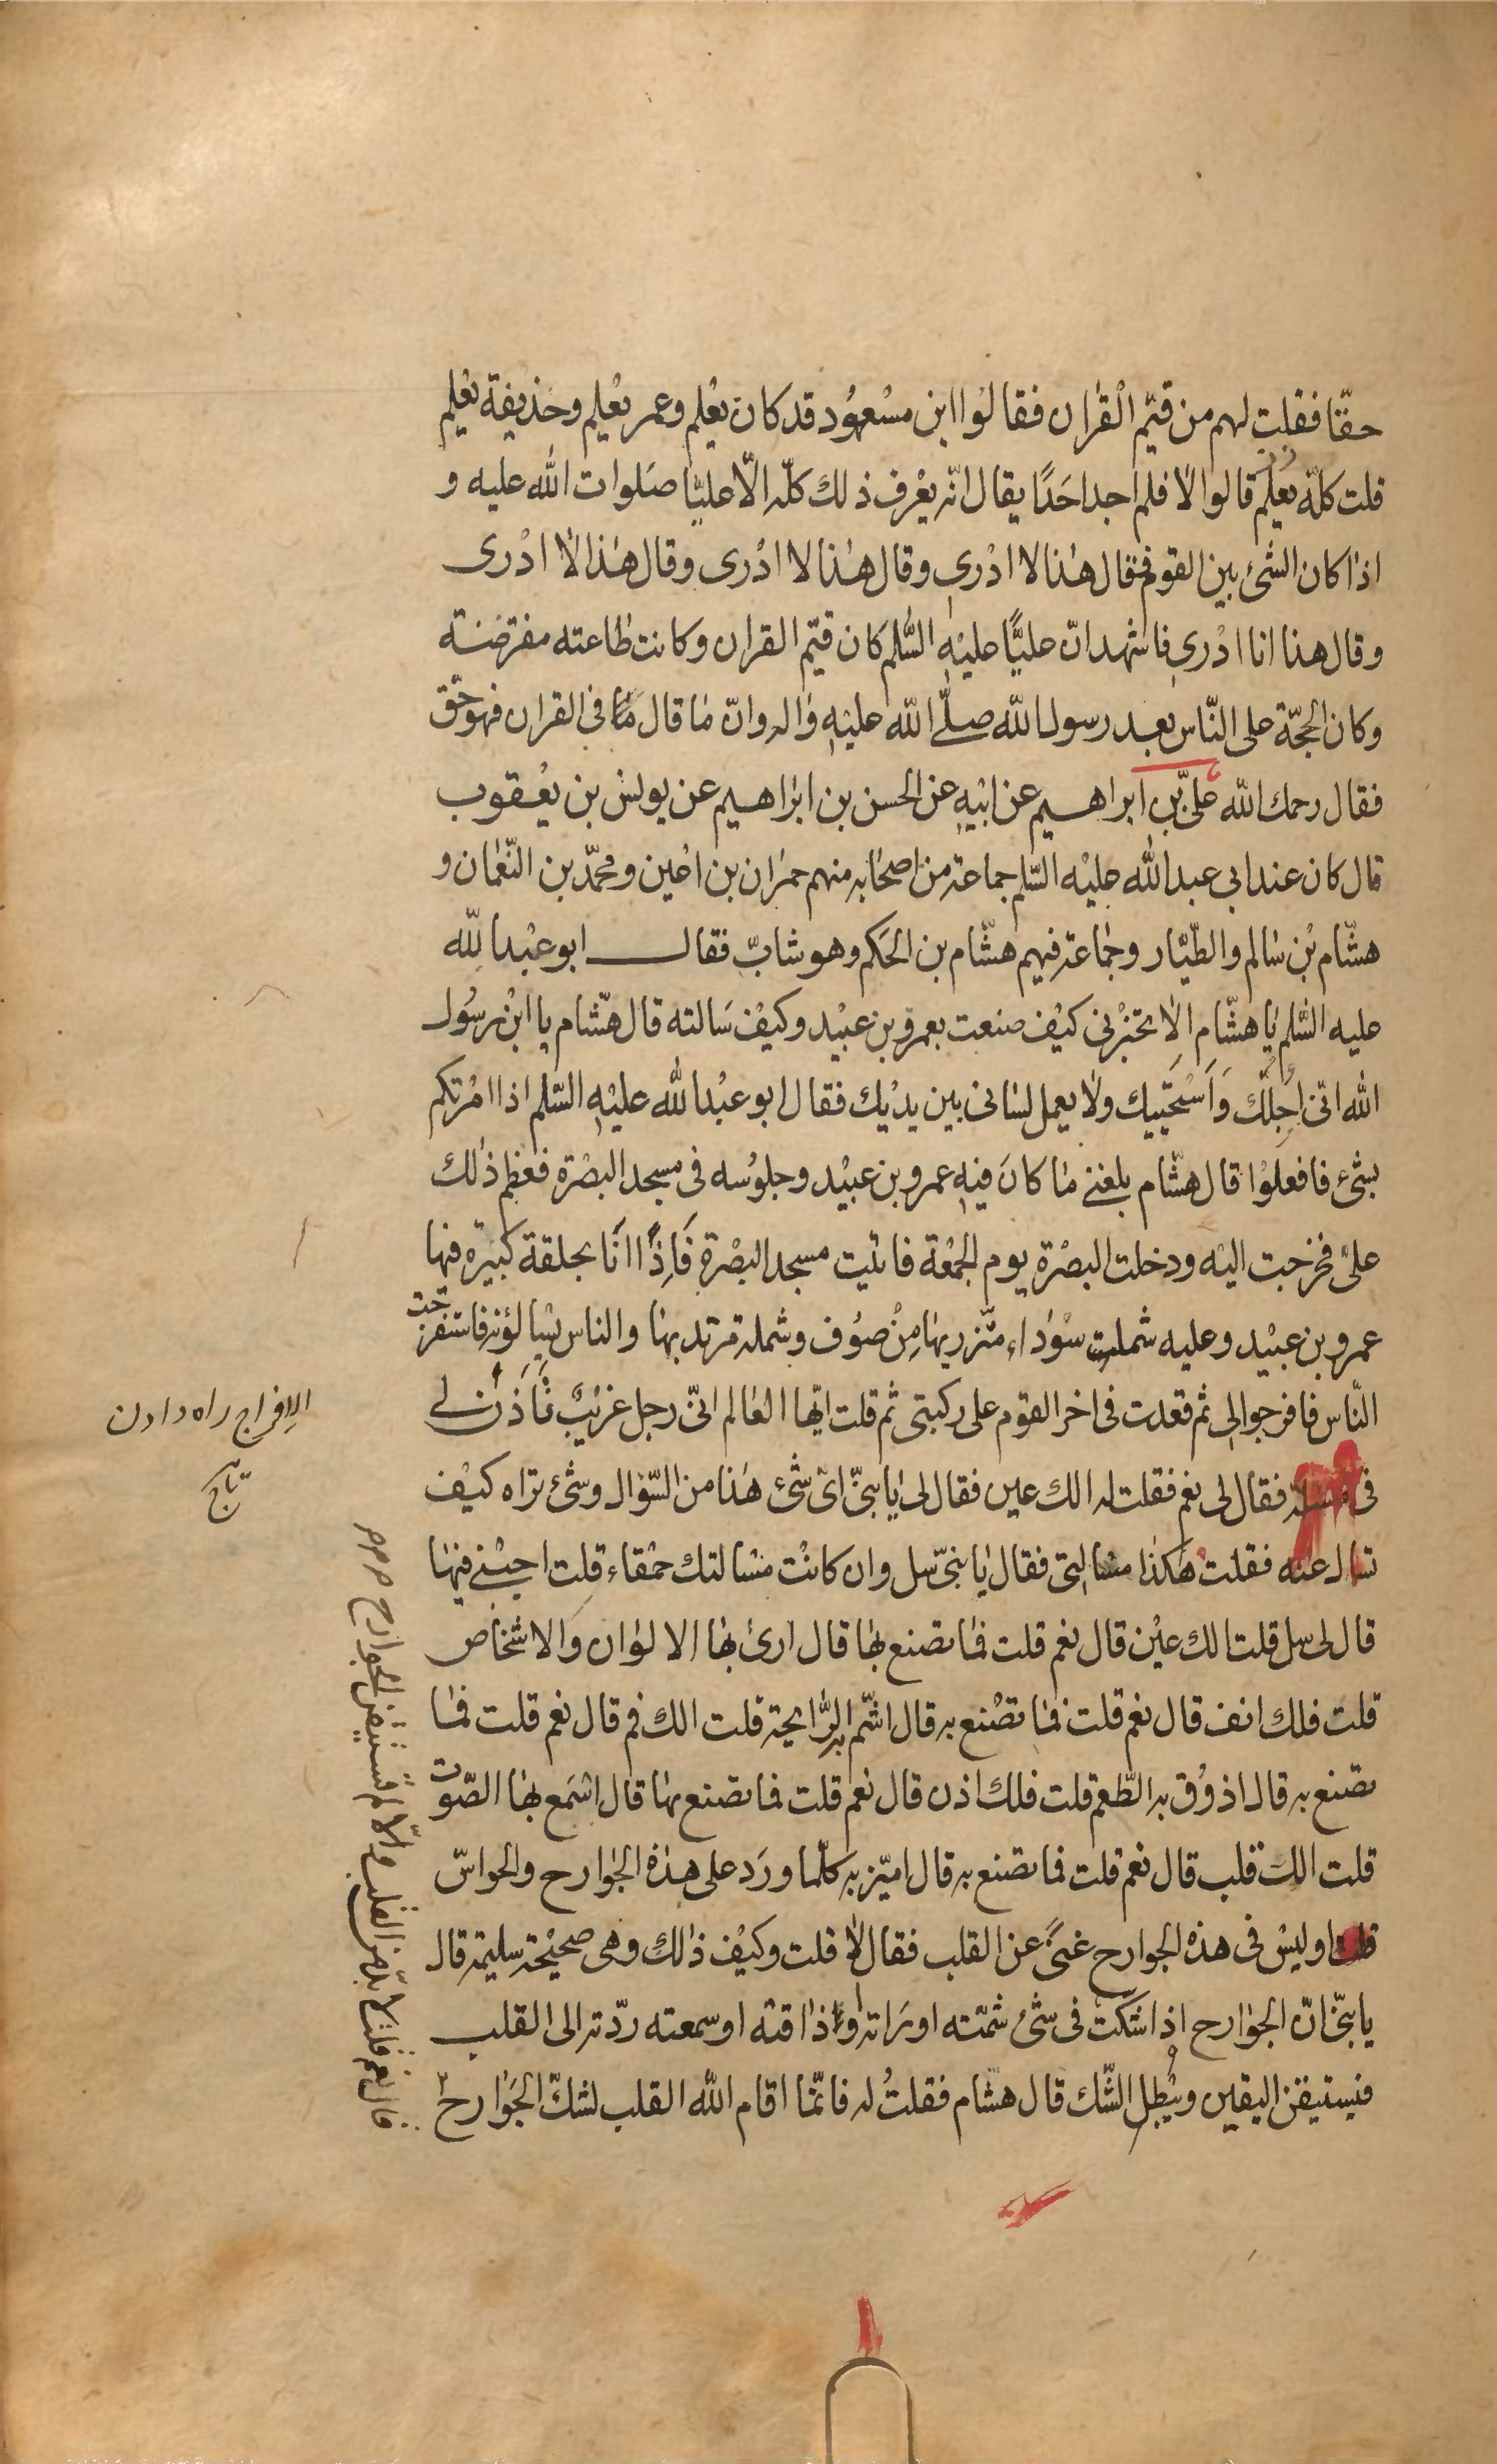 حقّا فقلت لهم من قيّم القران فقالوا ابن مسعود قد كان يعلم وعمر يعلم وحذيفة يعلم
قلت كلّه يعلم قالوا لا فلم اجد احَدًا يقال انّه يعْرف ذلك كلّه الّا عليّا صَلوات الله عليه و
اذا كان الشئ بين القوم فقال هذا لا ادْرى وقال هذا لا ادْرى وقال هذا لا ادْرى
وقال هذا انا ادْرى فاشهد انّ عليًّا عليْه السّلم كان قيّم القران وكانت طاعته مفترضة
وكان الحجّة على النّاس بعد رسول الله صلّى الله عليْه واله وانّ ما قال ما فى القران فهو حقّ
فقال رحمك الله علىّ بن ابراهيم عن ابيْه عن الحسن بن ابراهيم عن يونس بن يعْقوب
قال كان عند ابى عبد الله عليْه السّلم جماعة من اصحابه منهم حمران بن اعين ومحمّد بن النّعمان و
هشّام بْن سالم والطّيّار وجماعة فيهم هشّام بن الحَكم وهو شابّ فقال ابو عبْد الله
عليه السّلم يا هشّام الا تخبْرنى كيْف صنعت بعمرو بن عبيْد وكيْف سَالته قال هشّام يا ابْن رسُول
الله انّى اجلّك وَاَسْتَحْييك ولا يعمل لسانى بين يديْك فقال ابو عبْد الله عليْه السّلم اذا امْرتكم
بشئ فافعلوْا قال هشّام بلغنى ما كانَ فيْه عمرو بن عبيْد وجلوُسه فى مسجد البصْرة فعظم ذلك
علىّ فخرجت اليْه ودخلت البصْرة يوم الجمْعة فاتيت مسجد البصْرة فَاِذًا انَا بحلقة كبيْرة فيها
عمرو بن عبيْد وعليه شملت سوْداء متّزر بها مِنْ صوُف وشملة مرتد بها والناس يسْالوْنه فاستفرجت
النّاس فافرجوا لى ثم قعدت فى اخر القوم على ركبتى ثم قلت ايّها العالم انّى رجل غريْبٌ تَأذن لى
فى مسئلة فقال لى نعم فقلت له الك عين فقال لى يا بنىّ اىّ شئ هذا من السّؤال وشئ تراه كيْف
تسال عنه فقلت هكذا مسالتى فقال يا بنىّ سل وان كانتْ مسْالتك حمْقاء قلت اجبْنى فيْها
قال لى سل قلت الك عيْن قال نعم قلت فما تصنع بها قال ارى بها الالوان والاشخاص
قلت فلك انف قال نعم قلت فما تصْنع به قال اشّم به الرّايحة قلت الك فم قال نعم قلت فما
تصنع به قال اذوْق به الطّعم قلت فلك اذن قال نعم قلت فما تصنع بها قال اسْمَع بها الصّوت
قلت الك قلب قال نعم قلت فما تصنع به قال اميّز به كلّما ورَد على هذه الجوارح والحواسّ
قلت اوليْس فى هذه الجوارح غنىً عن القلب فقال لا قلت وكيْف ذلك وهى صحيْحة سليمة قال
يا بنىّ انّ الجوارح اذا شكّت فى شئ شمّته او رَاته او ذاقته او سمعته ردّته الى القلب
فيستيقن اليقين ويبْطل الشّك قال هشّام فقلتُ له فانّما اقام الله القلب لشكّ الجَوارح
قال نعم قلت لا بدّ من القلب والّا لم تستيقن الجوارح
الإفراج راه دادن
تاج